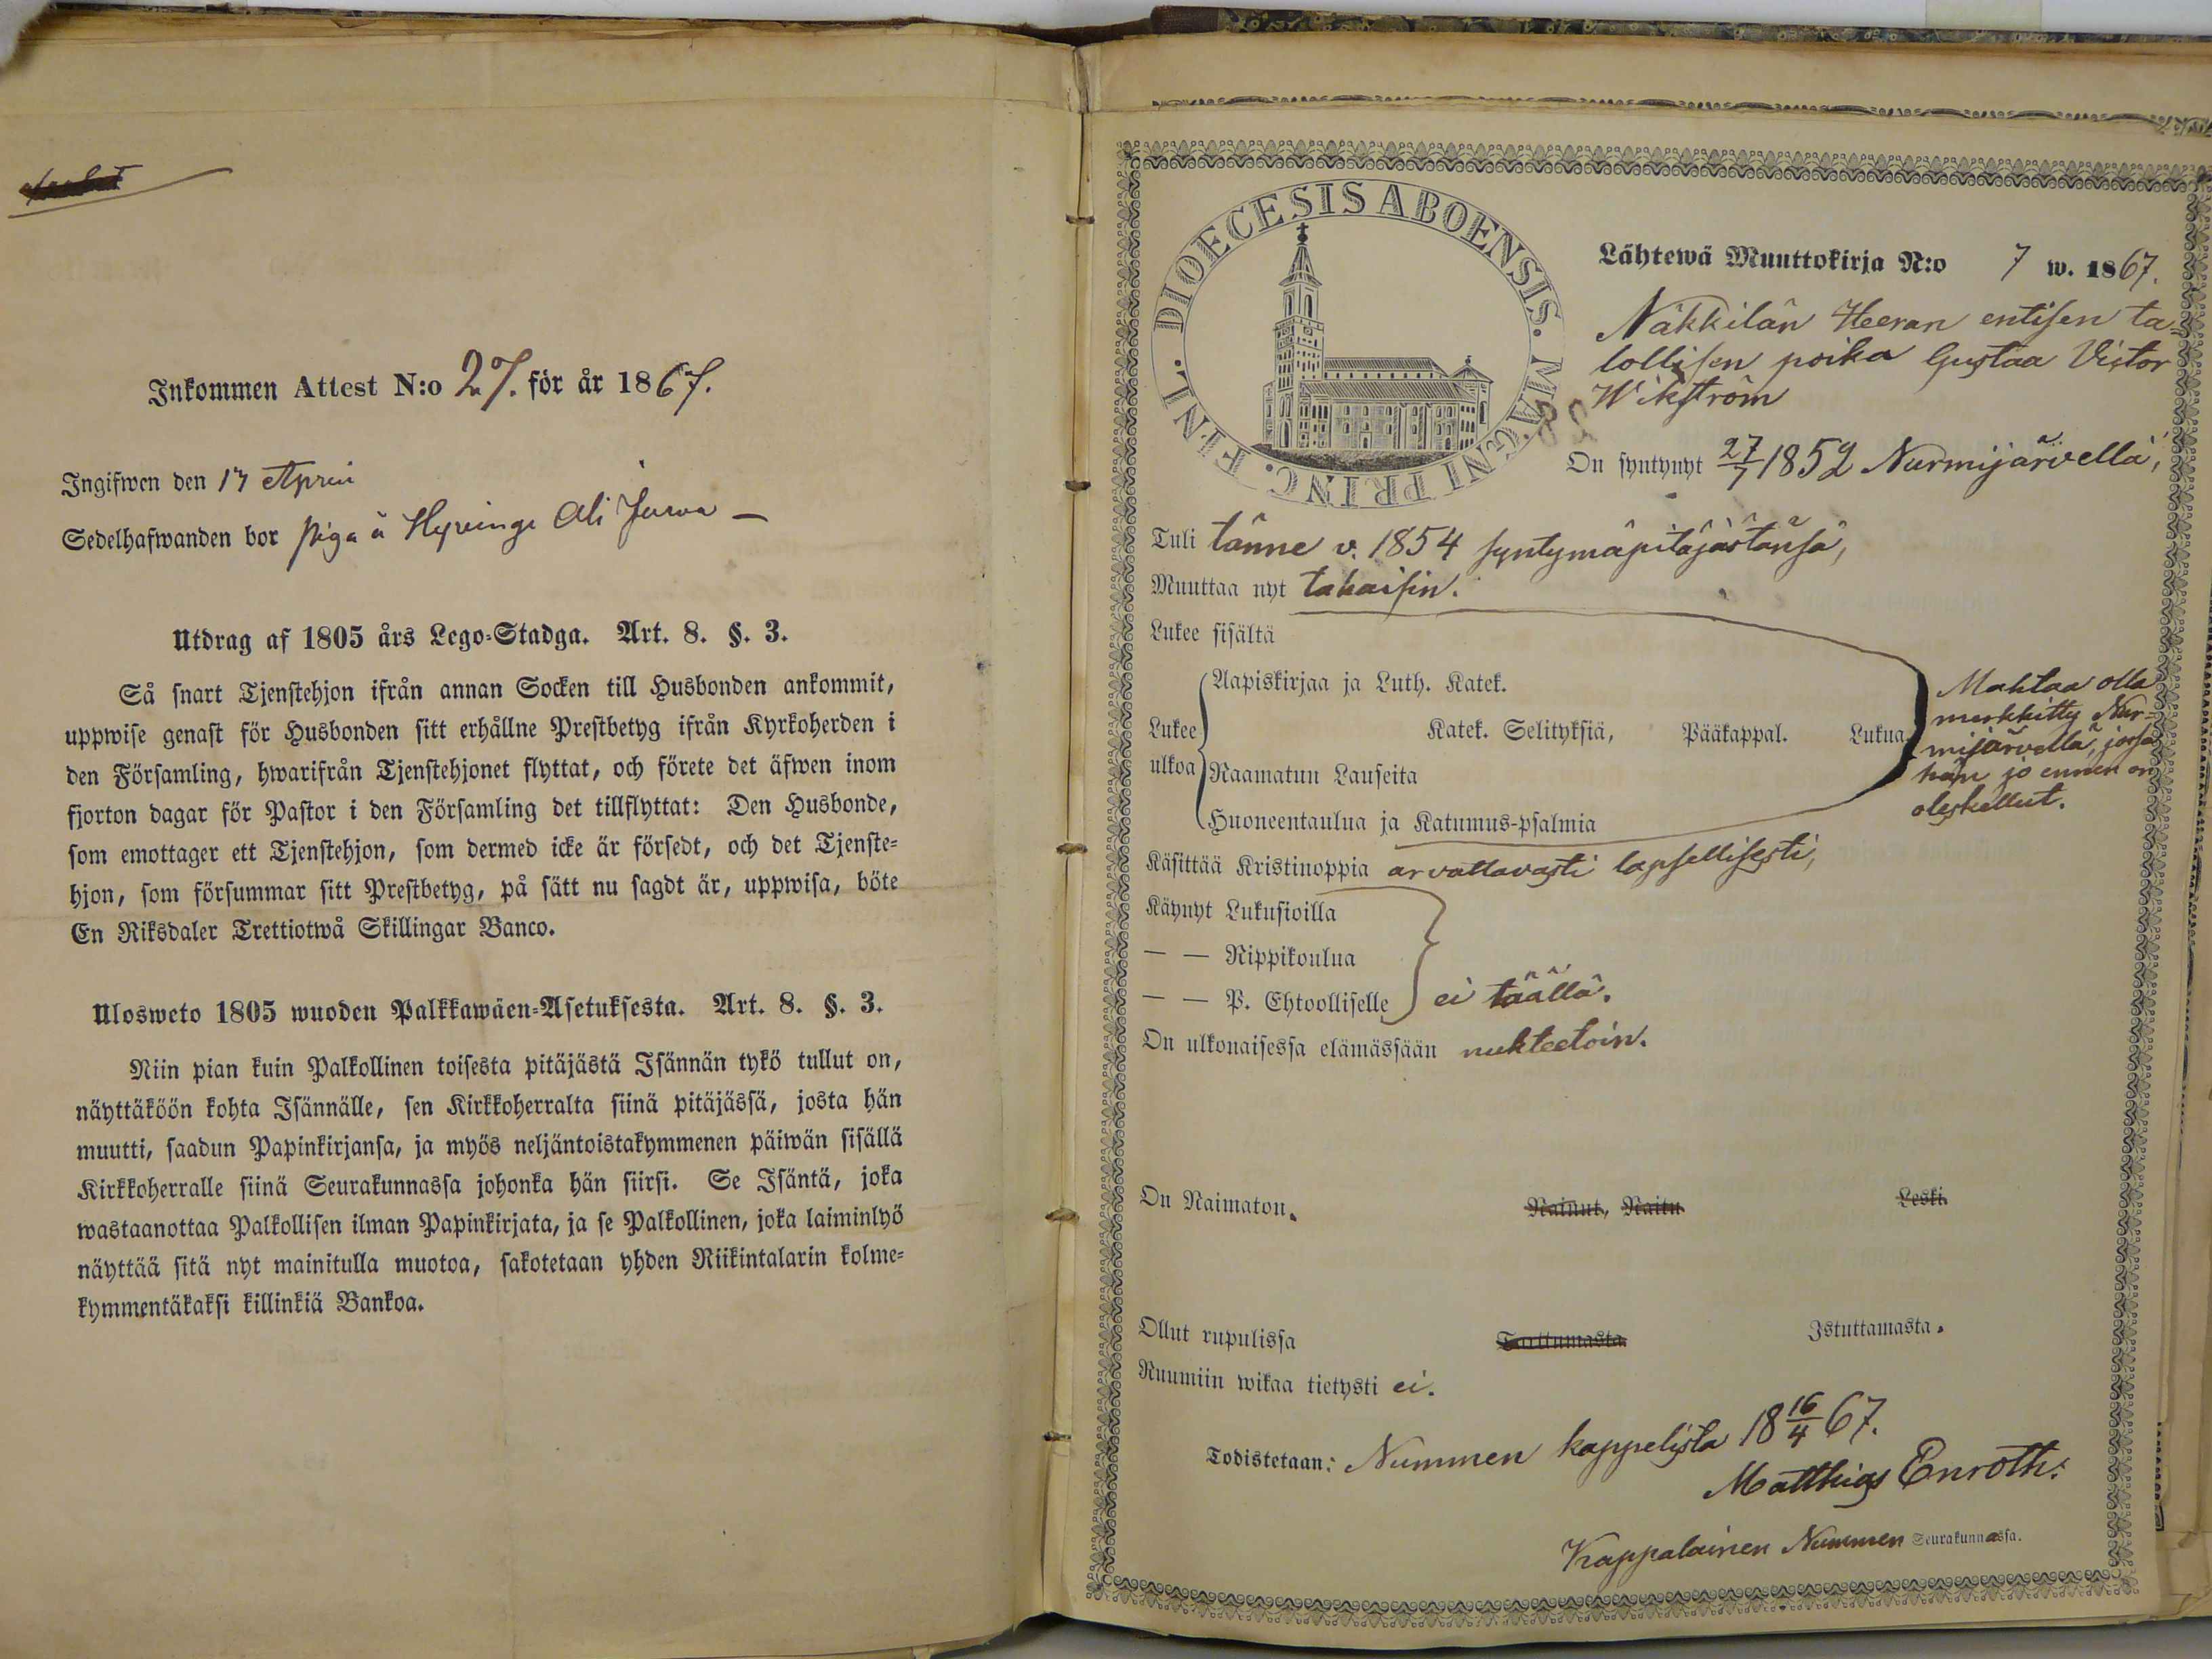 Inkommen Attest N:o 27. för år 1867.
Ingifwen den 17 April
Sedelhafwanden bor piga å Hyvinge Ali Jurva –
Utdrag af 1805 års Lego-Stadga. Art. 8. §. 3.
Så snart Tjenstehjon ifrån annan Socken till Husbonden ankommit,
uppwise genast för Husbonden sitt erhållne Prestbetyg ifrån Kyrkoherden i
den Församling, hwarifrån Tjenstehjonet flyttat, och förete det äfwen inom
fjorton dagar för Pastor i den Församling det tillflyttat: Den Husbonde,
som emottager ett Tjenstehjon, som dermed icke är försedt, och det Tjenste-
hjon, som försummar sitt Prestbetyg, på sätt nu sagdt är, uppwisa, böte
En Riksdaler Trettiotwå Skillingar Banco.
Ulosweto 1805 wuoden Palkkawäen-Asetuksesta. Art. 8. §. 3.
Niin pian kuin Palkollinen toisesta pitäjästä Isännän tykö tullut on,
näyttäköön kohta Isännälle, sen Kirkkoherralta siinä pitäjässä, josta hän
muutti, saadun Papinkirjansa, ja myös neljäntoistakymmenen päiwän sisällä
Kirkkoherralle siinä Seurakunnassa johonka hän siirsi. Se Isäntä, joka
wastaanottaa Palkollisen ilman Papinkirjata, ja se Palkollinen, joka laiminlyö
näyttää sitä nyt mainitulla muotoa, sakotetaan yhden Riikintalarin kolme-
kymmentäkaksi killinkiä Bankoa.
DIOECESIS ABOENSIS. MAGNI PRINC. FINL.
Lähtewä Muuttokirja N:o 7 w. 1867.
Näkkilän Heeran entisen ta-
lollisen poika Gustaa Victor
Wikström
82
On syntynyt 27/7 1852 Nurmijärvellä,
Tuli tänne v. 1854 syntymäpitäjästänsä,
Muuttaa nyt takaisin.
Lukee sisältä
Aapiskirjaa ja Luth. Katek.
Lukee ulkoa Katek. Selityksiä, Pääkappal. Lukua
Raamatun Lauseita
Huoneentaulua ja Katumus-psalmia
Mahtaa olla
merkkitty Nur-
mijärvellä, jossa
hän jo ennen on
oleskellut.
Käsittää Kristinoppia arvattavasti lapsellisesti,
Käynyt Lukusioilla
— — Rippikoulua
— — P. Ehtoolliselle ei täällä.
On ulkonaisessa elämässään nuhteetoin.
On Naimaton. Nainut, Naitu Leski.
Ollut rupulissa Tarttumasta Istuttamasta.
Ruumiin wikaa tietysti ei.
Todistetaan: Nummen kappelista 18 16/4 67.
Matthias Enroth.
Kappalainen Nummen Seurakunnassa.